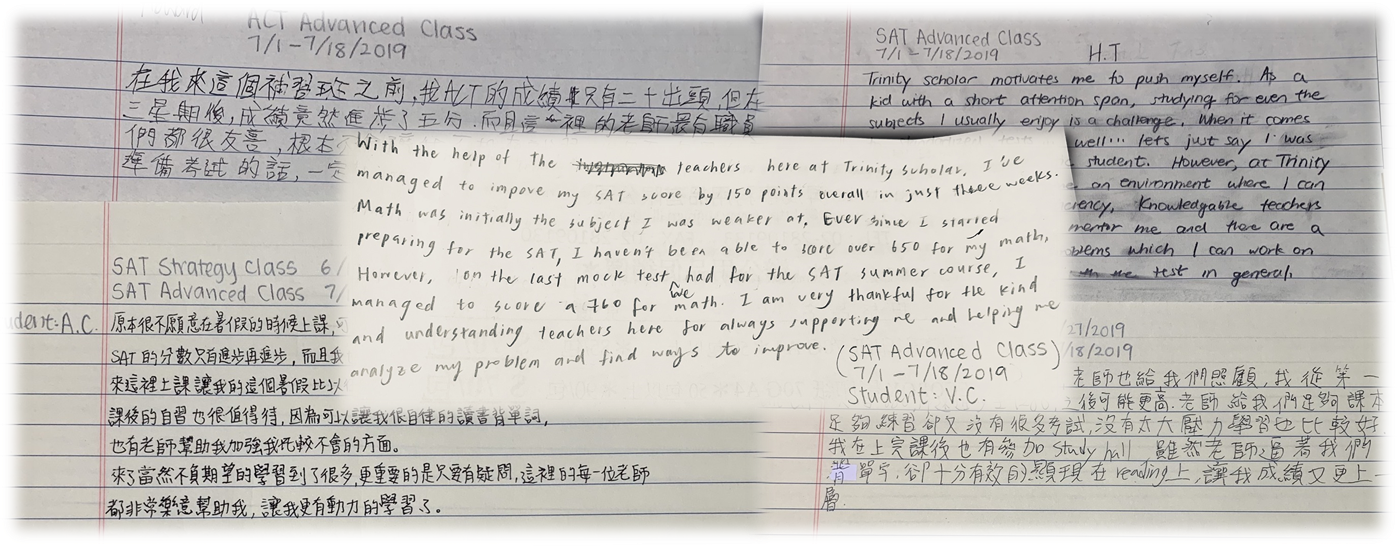 ACT Advanced Class
7/1 - 7/18/2019
在我來這個補習班之前,我ACT的成績只有二十出頭,但在
三星期後,成績竟然進步了五分.而且這裡的老師還有職員
們都很友善,根本
準備考試的話,一定
SAT Advanced Class
7/1 - 7/18/2019 H.T
Trinity scholar motivates me to push myself. As a
kid with a short attention span, studying for even the
subjects I usually enjoy is a challenge. When it comes
well... lets just say I was
student. However, at Trinity
an environment where I can
Knowledgable teachers
mentor me and there are a
which I can work on
test in general.
With the help of the teachers here at Trinity scholar, I've
managed to impove my SAT score by 150 points overall in just three weeks.
Math was initially the subject I was weaker at. Ever since I starred
preparing for the SAT, I haven't been able to score over 650 for my math,
However, on the last mock test we had for the SAT summer course, I
managed to score a 760 for math. I am very thankful for the kind
and understanding teachers here for always supporting me and helping me
analyze my problem and find ways to improve.
(SAT Advanced Class)
7/1 - 7/18/2019
Student: V.C.
SAT Strategy Class 6/
SAT Advanced Class 7/
A.C.
原本很不願意在暑假的時候上課,可
SAT的分數只有進步再進步,而且我
來這裡上課讓我的這個暑假比以
課後的自習也很值得待,因為可以讓我很自律的讀書背單詞,
也有老師幫助我加強我比較不會的方面。
來了當然不負期望的學習到了很多,更重要的是只要有疑問,這裡的每一位老師
都非常樂意幫助我,讓我更有動力的學習了。
27/2019
/18/2019
老師也給我們照顧,我從第一
之後可能更高.老師給我們足夠課本
足夠練習卻又沒有很多考試,沒有太大壓力學習也比較好
我在上完課後也有參加study hall,雖然老師逼著我們
背單字,卻十分有效的顯現在reading上,讓我成績又更上一
層.